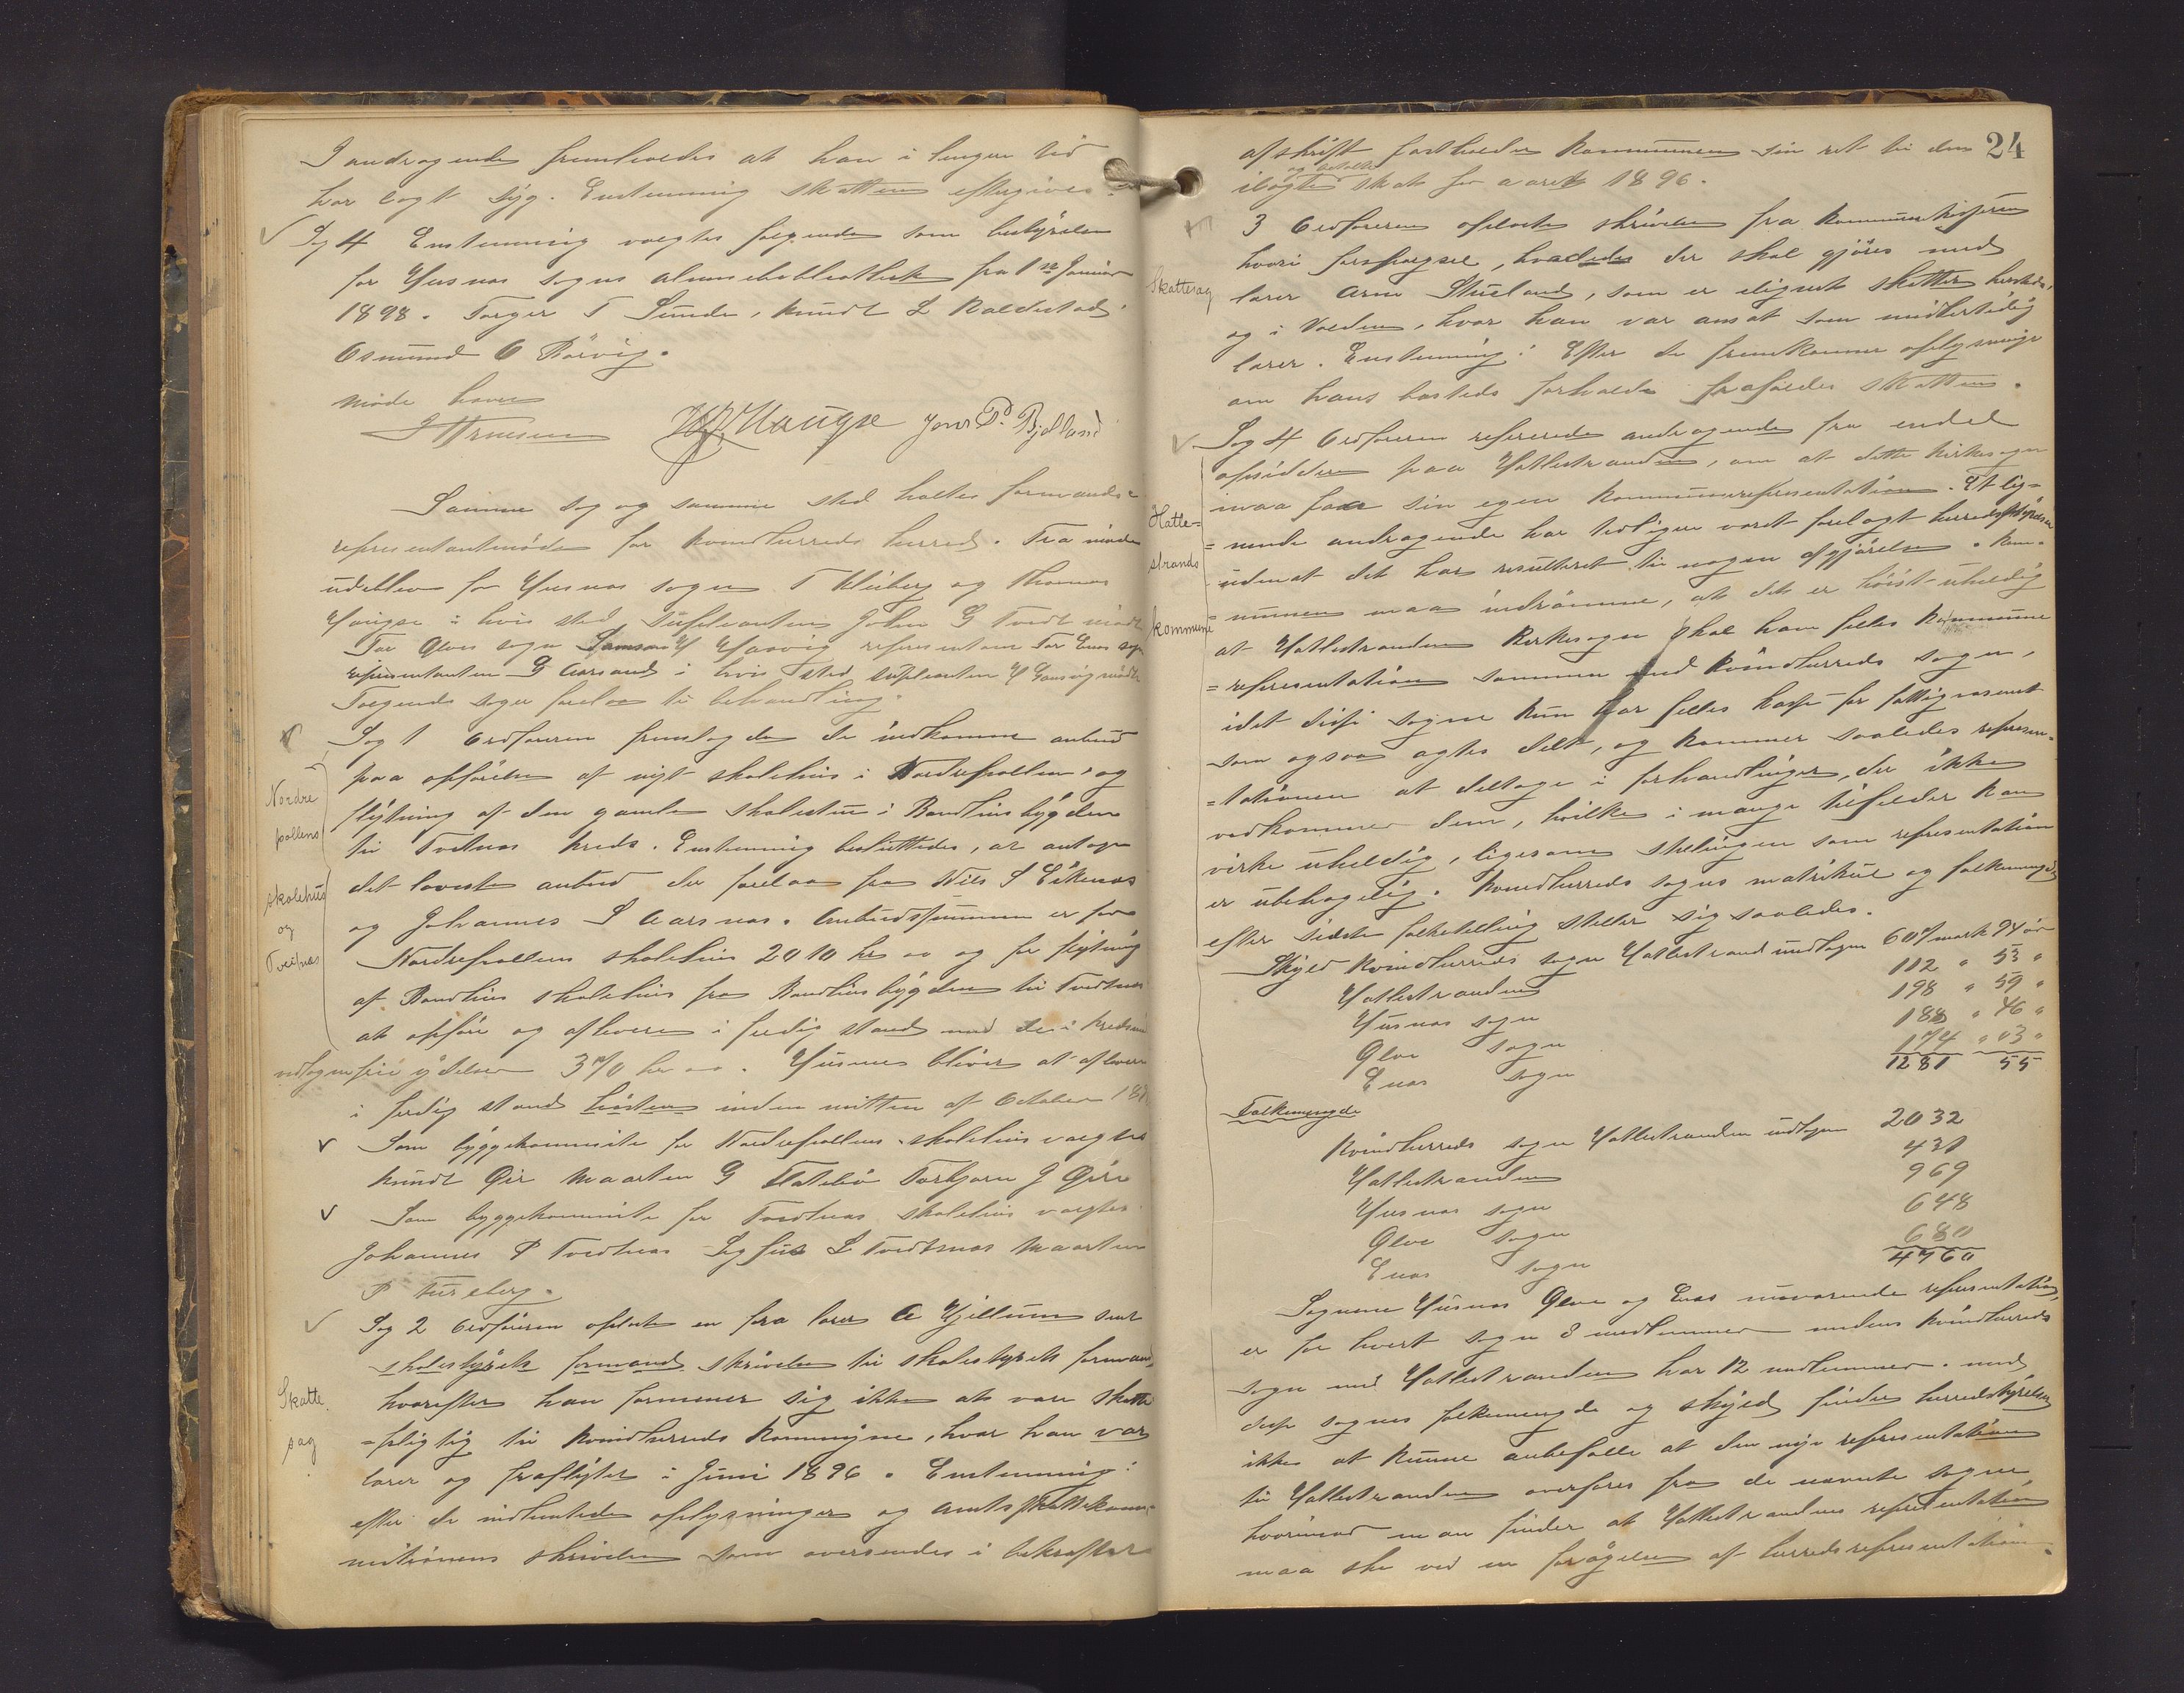 I andragende fremholdes at han i lengere tid
har lagt syg. Enstemmig skatten eftergives.
Sag 4 Enstemmig valgtes følgende som bestyrelse
for Husnæs sogns almuebibliothek fra 1ste Januar
1898. Torger T Sunde, Knudt L Kaldestad.
Osmund O Rörvig.
Møde hævet
Samme dag og samme sted holtes formands-
representantmøde for Kvindherreds herred. Fra møde
udeblev for Husnæs sogn T Kleiberg og Thomas
Haugse i hvis sted Supleanten John G Tvedt mødte
For Ølve sogn Samson H Haavig representant For Enæs sogn
representanten G Aarsand i hvis sted supleanten H Gausvig mødte
Følgende sager forelaa til behandling.
Sag 1 Ordføreren fremlagde de indkomne anbud
paa opførelse af nyt skolehus i Nordrepollen, og
flytning af den gamle skolestue i Bondhusbygden
til Tveitnæs kreds. Enstemmig besluttedes, at antage
det laveste anbud der forelaa fra Nils S Eikenæs
og Johannes S Aarsnæs. Anbudssummen er for
Nordrepollens skolehus 2010 kr 00 og for flytning
af Bondhus skolehus fra Bondhusbygden til Tvedtnæs
at opføre og aflevere i ferdig stand med de i kredsen
udlagne frie ydelser 370 kr 00. Husene bliver at aflevere
i ferdig stand høsten inden mitten af October 189
Som byggekommite for Nordrepollens skolehus valgtes
Knudt Øir Maarten G Flatebø Torbjørn J Øire
Som byggekommite for Tvedtnæs skolehus valgtes
Johannes P Tvedtnæs Sjfus L Tvedtsnæs Maarten
P Fureberg.
Sag 2 Ordføreren oplæste en fra lærer A Hjellum sent
skolestyrets formand skrivelse til skolestyrets formand
hvorefter han formener sig ikke at være skatte
=pligtig til Kvindherreds Kommune, hvor han var
lærer og fraflytet i Juni 1896. Enstemmig:
efter de indhentede oplysninger og Amtsskattekom-
mitionens skrivelse som oversendes i bekræftet
Nordre
pollens
skolehus
og
Tveitnæs
Skatte
sag
24
afskrift fastholder kommunen sin ret til den
og betalte
ilagte skat for aaret 1896.
3 Ordføreren oplæste skrivelse fra kommunekassereren
hvori forespørgsel, hvaledes der skal gjøres med
lærer Arne Stueland, som er ilignet skatter herstedes,
og i Volden, hvor han var ansat som midlertidig
lærer. Enstemmig: Efter de fremkomne oplysninger
om hans bosteds forholde frafaldes skatten.
Sag 4 Ordføreren refererede andragende fra endel
opsiddere paa Hatlestranden, om at dette kirkesogn
maa faar sin egen kommunerepresentation. Et lig-
=nende andragende har tidligere været forelagt herredsstyrelsen
uden at det har resulteret til nogen afgjørelse. Kom-
=munen maa indrømme, at det er høist uheldig
at Hatlestrandens Kirkesogn skal have felles kommune
=representation sammen med Kvindherreds sogn,
idet disse sogne kun har felles kasse for fattigvæsenet
som ogsaa agtes delt, og kommer saaledes represen-
=tationen at deltage i forhandlinger, der ikke
vedkommer dem, hvilke i mange tilfelder kan
virke uheldig, ligesom stelingen som representation
er ubehagelig. Kvindherreds sogns matrikul og folkemengde
efter sidste folketelling steller sig saaledes.
Skyld Kvindherreds sogn Hatlestrand undtagen 607 mark 94 ør
Hatlestranden 112 " 53 "
Husnæs sogn 198 " 59 "
Ølve sogn 188 " 46 "
Enæs sogn 174 " 03 "
1281 55
Folkemengde
Kvindherreds sogn Hatlestranden undtagen 2032
Hatlestranden 431
Husnæs sogn 969
Ølve sogn 648
Enæs sogn 680
4760
Sognene Husnæs Ølve og Enæs nuværende representation,
er for hvert sogn 8 medlemmer medens Kvindherreds
sogn med Hatlestranden har 12 medlemmer. med
disse sognes folkemengde og skyld finder herredsstyrelsen
ikke at kunne anbefalle at den nye representation
til Hatlestranden overføres fra de nævnte sogne,
hvorimod man finder at Hatlestrandens representation
maa ske ved en forøgelse af herredsrepresentation.
Skattesag
Hatle=
strands
kommune